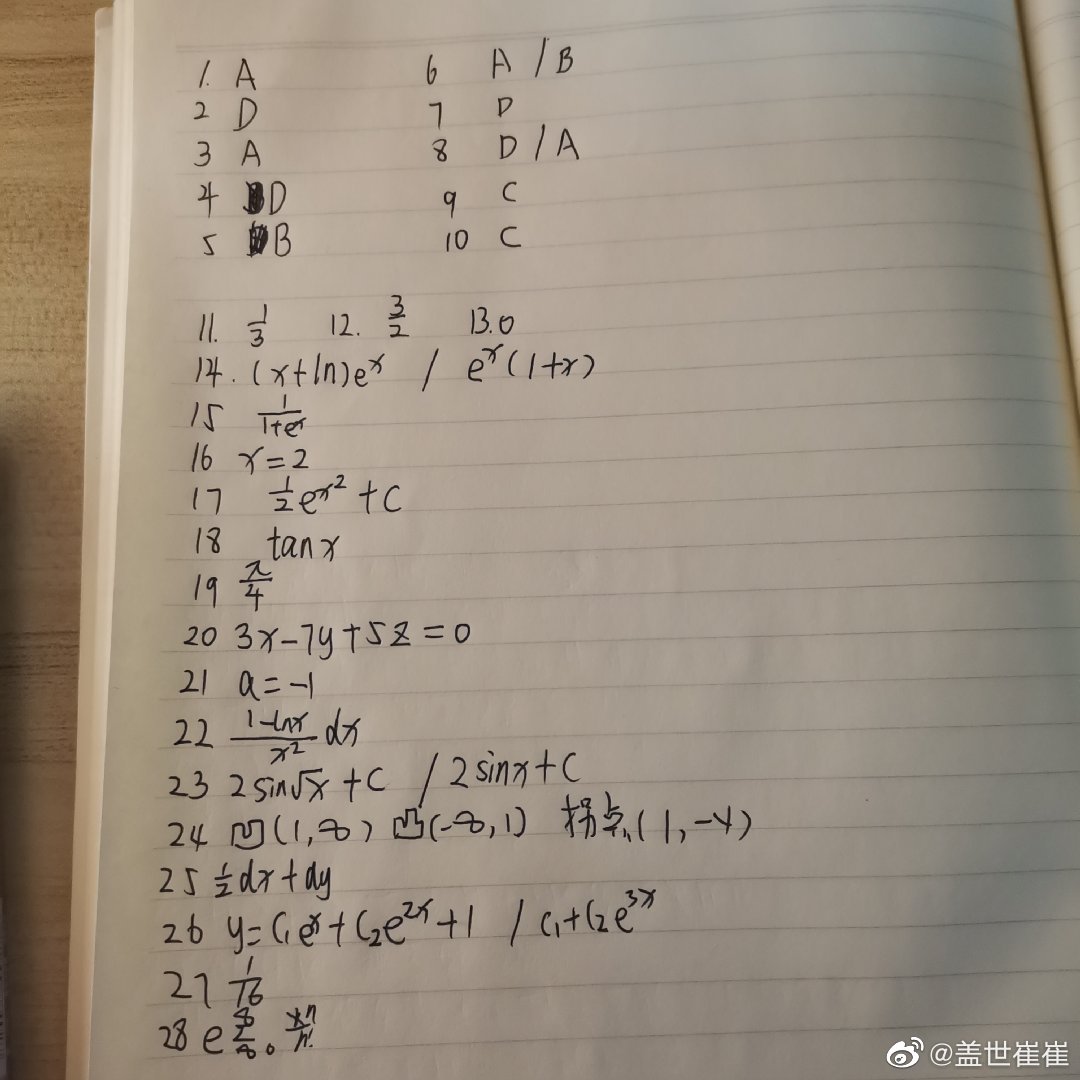 1. A 6 A / B
2 D 7 D
3 A 8 D / A
4 D 9 C
5 B 10 C
11. 1/3 12. 3/2 13.0
14. (x+ln)eˣ / eˣ(1+x)
15 1/(1+eˣ)
16 x=2
17 ½eˣ² + C
18 tanx
19 π/4
20 3x-7y+5z=0
21 a=-1
22 (1-lnx)/x² dx
23 2sin√x + C / 2sinx+C
24 凹(1,∞) 凸(-∞,1) 拐点(1,-4)
25 ½dx+dy
26 y=C₁eˣ+C₂e²ˣ+1 / C₁+C₂e³ˣ
27 1/16
28 e xⁿ/n!
@盖世崔崔